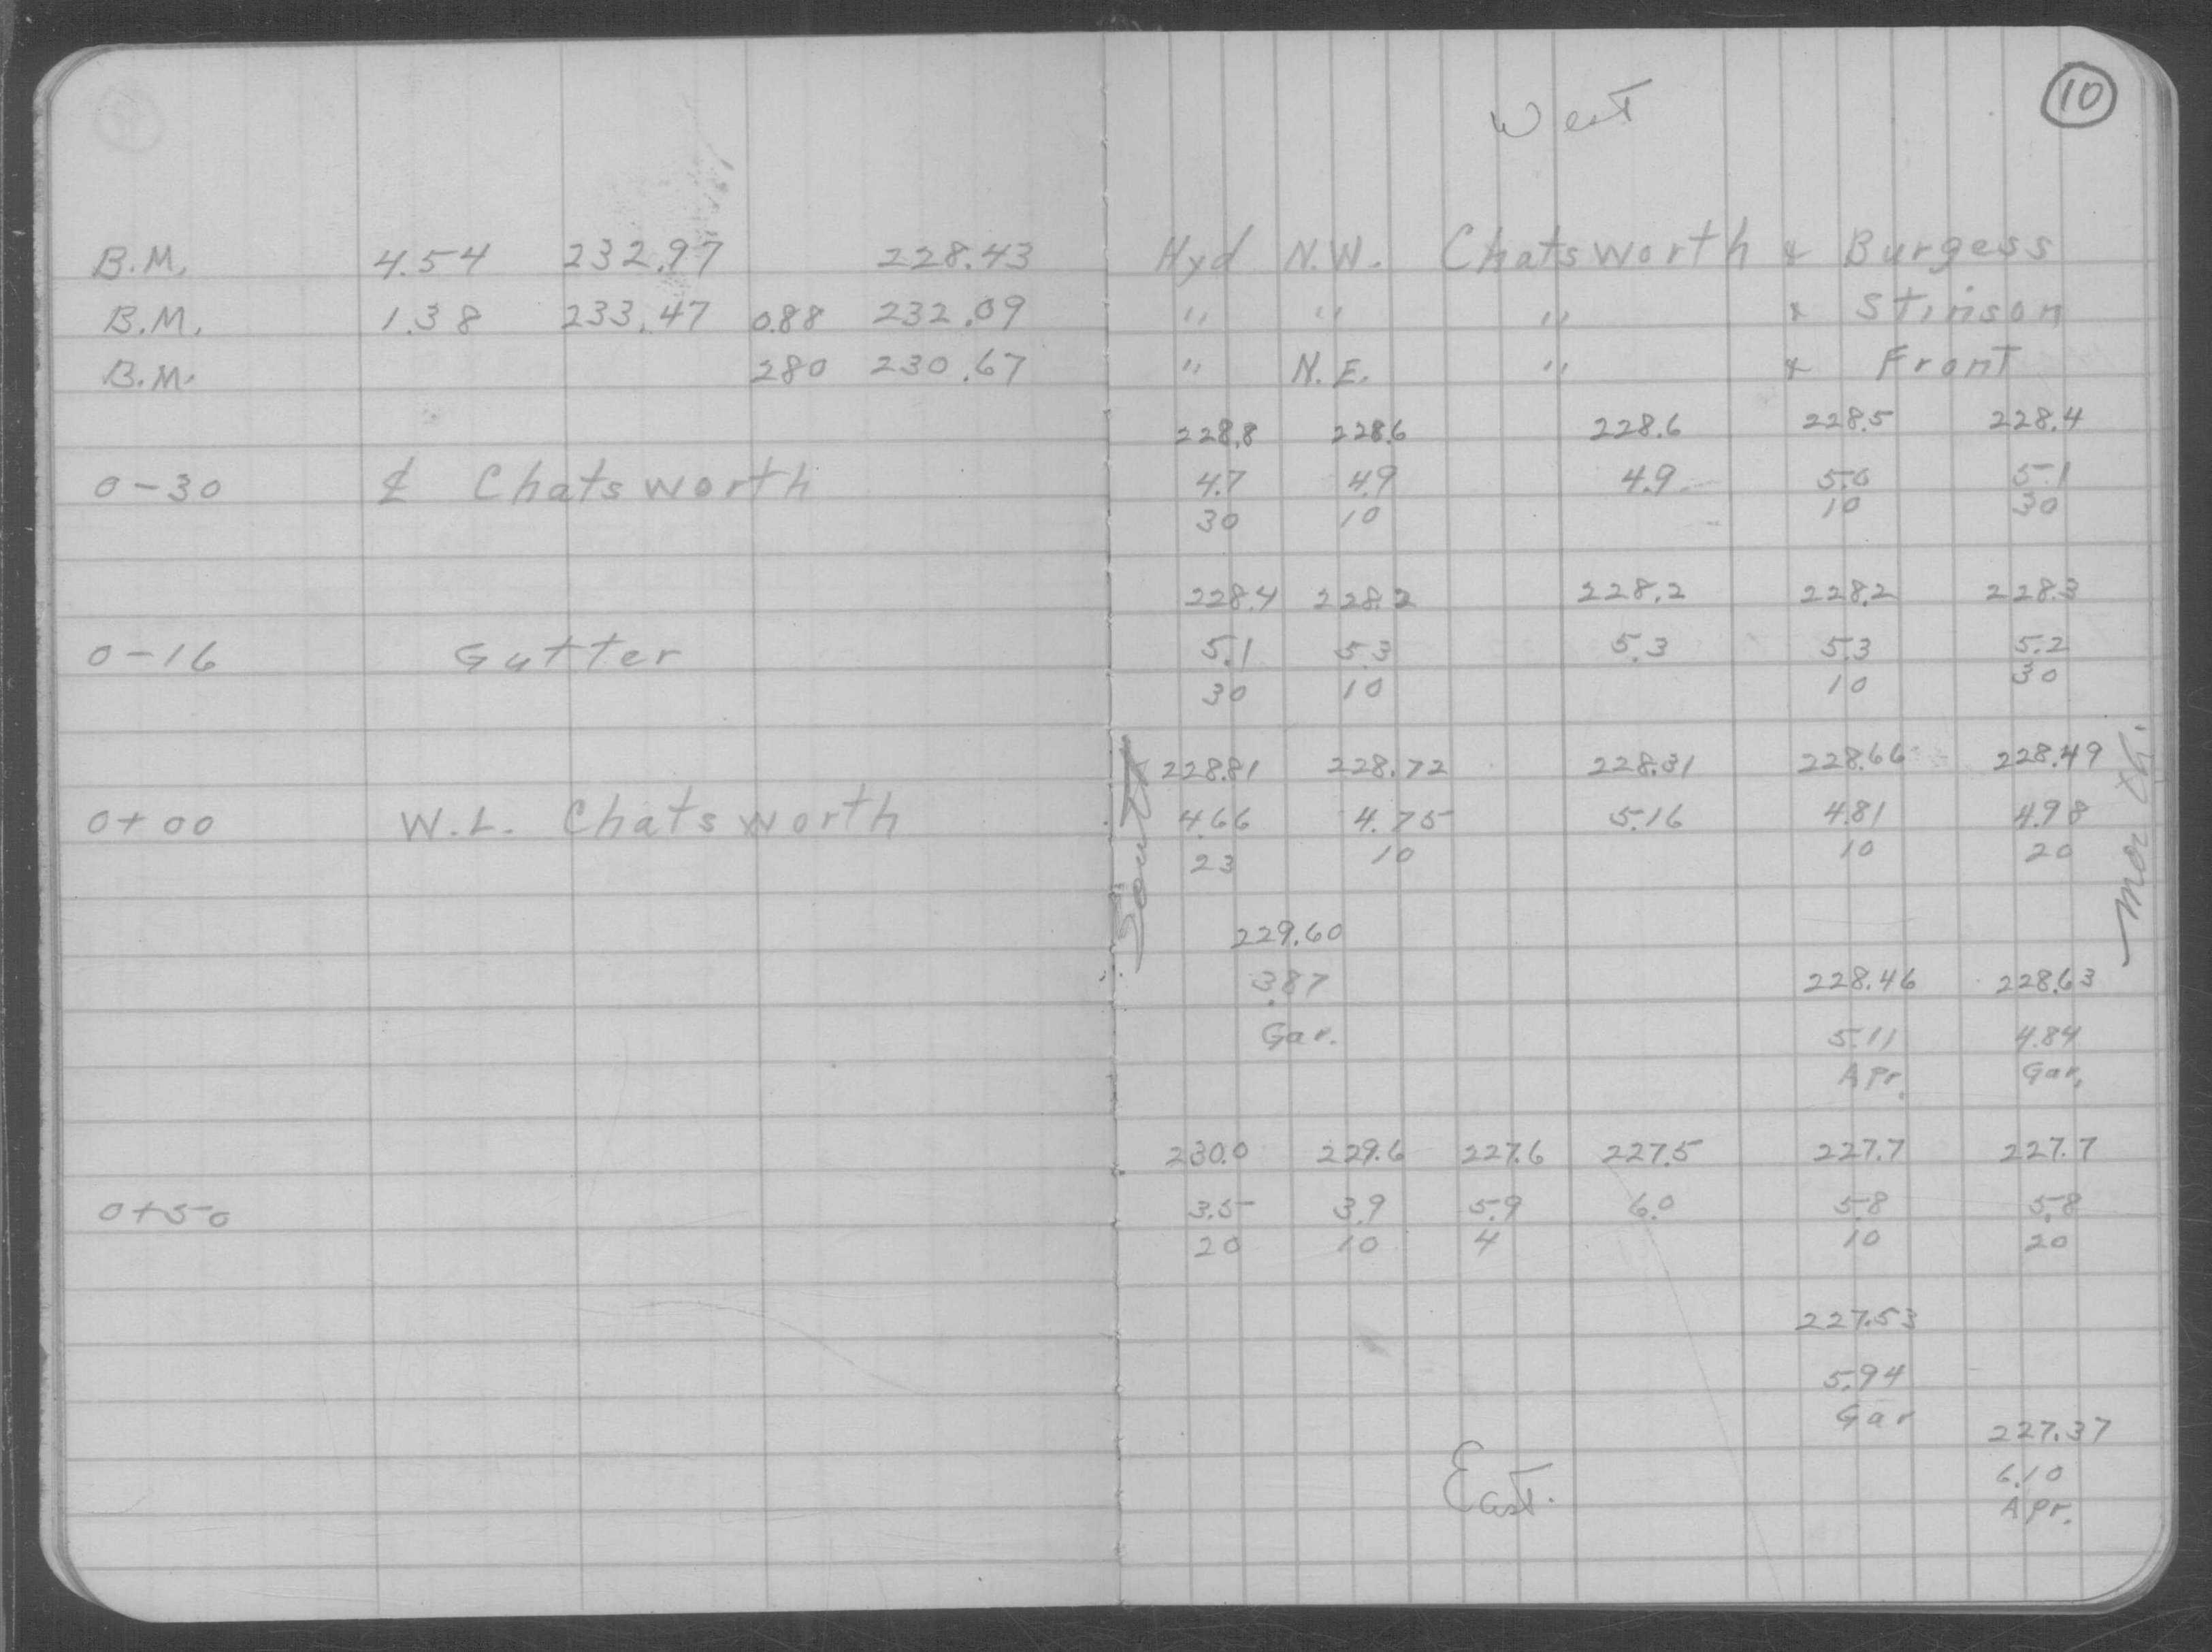 10
West
B.M. 4.54 232.97 228.43 Hyd N.W. Chatsworth & Burgess
B.M. 1.38 233.47 0.88 232.09 " " " & Stinson
B.M. 280 230.67 " N.E. " & Front
228.8 228.6 228.6 228.5 228.4
0-30 ₵ Chatsworth 4.7 4.9 4.9 5.0 5.1
30 10 10 30
228.4 228.2 228.2 228.2 228.3
0-16 Gutter 5.1 5.3 5.3 5.3 5.2
30 10 10 30
South
North.
228.81 228.72 228.31 228.66 228.49
0+00 W.L. Chatsworth 4.66 4.75 5.16 4.81 4.98
23 10 10 20
229.60
3.87 228.46 228.63
Gar. 5.11 4.84
Apr. Gar.
230.0 229.6 227.6 227.5 227.7 227.7
0+50 3.5 3.9 5.9 6.0 5.8 5.8
20 10 4 10 20
227.53
5.94
Gar 227.37
East. 6.10
Apr.